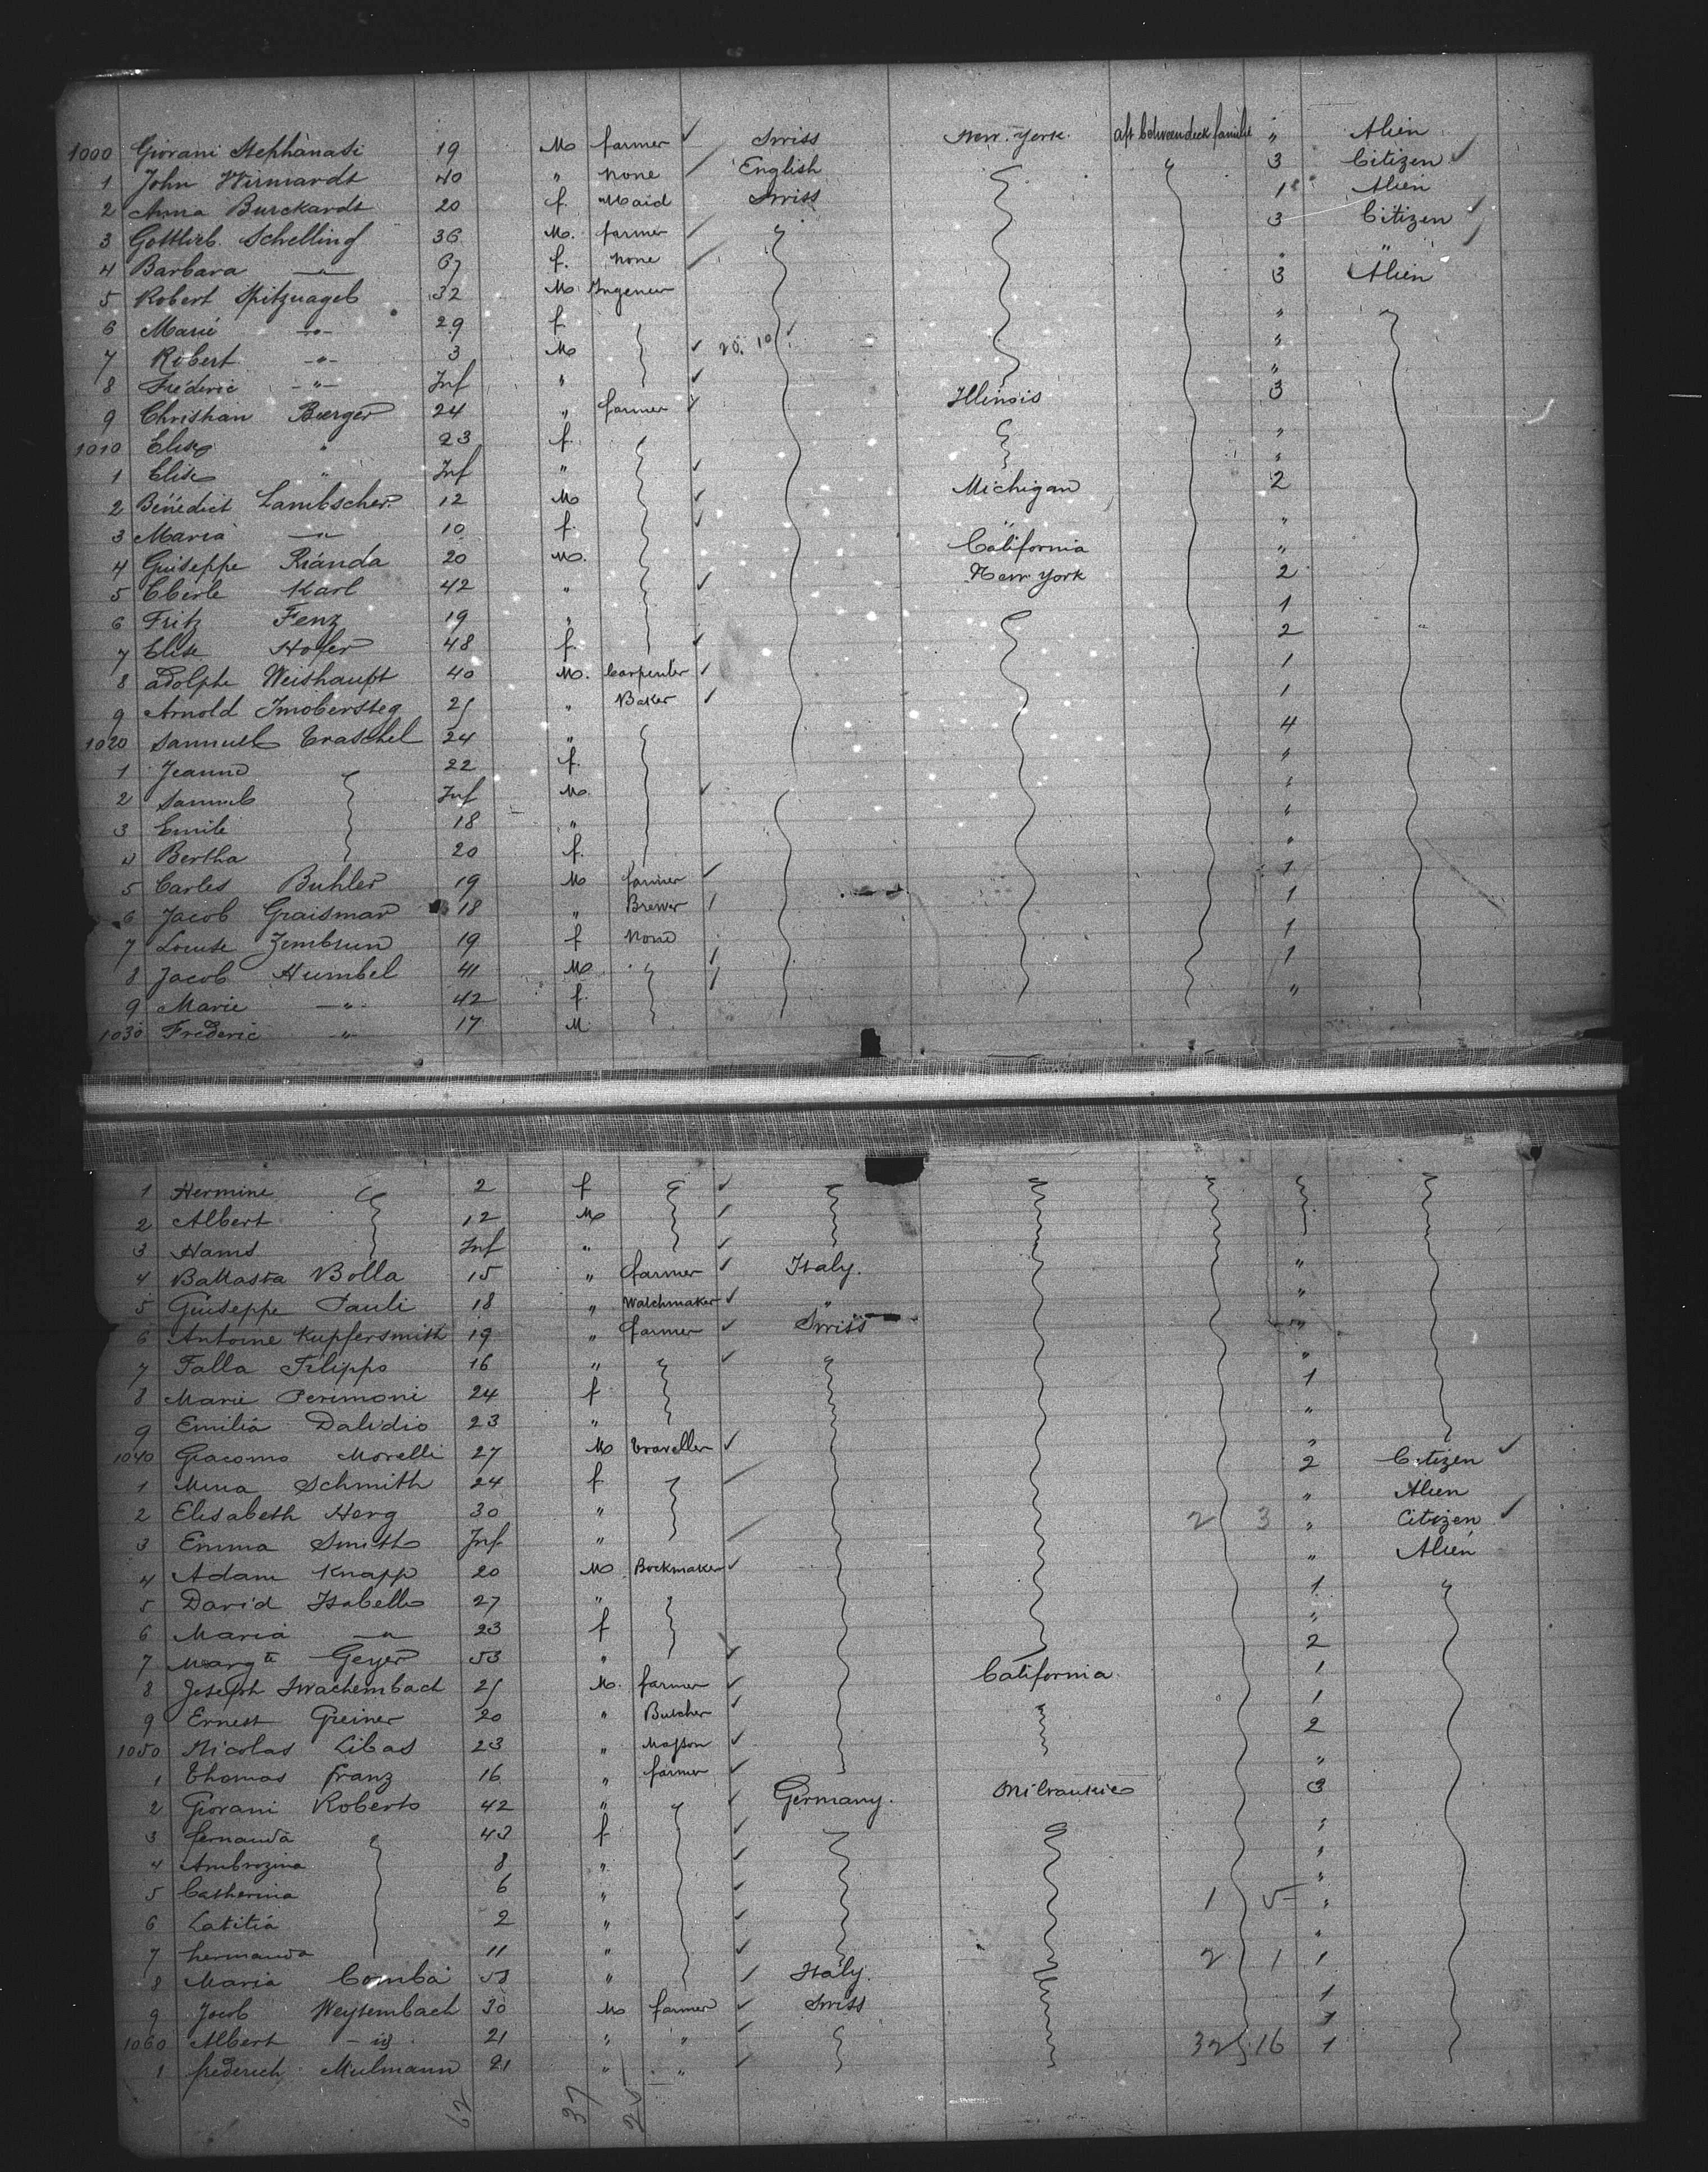 1000 Giovani Stephanasi 19 M farmer Swiss New-York. aft betweendeck familie " Alien
1 John Wirmardt 40 " None English 3 Citizen
2 Anna Burckardt 20 f. Maid Swiss 1 Alien
3 Gottlieb Schelling 36 M. farmer 3 Citizen
4 Barbara —"— 67 f. None " "
5 Robert Spitznagel 32 M Ingenieur 3 Alien
6 Marie —"— 29 f "
7 Robert —"— 3 M 20. 10 "
8 Fréderic —"— Inf " "
9 Christian Buerger 24 " farmer Illinois 3
1010 Elise " 23 f. "
1 Elise " Inf " "
2 Bénédict Lambscher 12 M Michigan 2
3 Maria —"— 10 f. " "
4 Guiseppe Rianda 20 M. California "
5 Eberle Karl 42 " New York 2
6 Fritz Fenz 19 " 1
7 Elise Hofer 48 f. 2
8 Adolphe Weishaupt 40 M. Carpenter 1
9 Arnold Imobersteg 25 " Baker 1
1020 Samuel Traschel 24 " 4
1 Jeanne 22 f. "
2 Samuel Inf M. "
3 Emile 18 " "
4 Bertha 20 f. "
5 Carles Buhler 19 M farmer 1
6 Jacob Graismar 18 " Brewer 1
7 Louise Zembrun 19 f None 1
8 Jacob Humbel 41 M 1
9 Marie —"— 42 f. "
1030 Frederic —"— 17 M
1 Hermine 2 f
2 Albert 12 M
3 Hams Inf "
4 Battasta Bolla 15 " farmer Italy. "
5 Guiseppe Pauli 18 " Watchmaker " "
6 Antoine Kupfersmith 19 " farmer Swiss "
7 Falla Filippo 16 " "
8 Marie Perimoni 24 f 1
9 Emilia Dalidio 23 " "
1040 Giacomo Morelli 27 M traveller "
1 Mina Schmith 24 f 2 Citizen
2 Elisabeth Herg 30 " " Alien
3 Emma Smith Inf " 2 3 " Citizen
4 Adam Knapp 20 M Bockmaker " Alien
5 David Isabelle 27 " 1
6 Maria —"— 23 f "
7 Margte Geyer 53 " 2
8 Joseph Swachembach 25 M. farmer California 1
9 Ernest Greiner 20 " Butcher 1
1050 Nicolas Libas 23 " Masson 2
1 Thomas franz 16 " farmer "
2 Giovani Roberto 42 " Germany. Milvaukie 3
3 fernanda 43 f "
4 Ambrozina 8 " "
5 Catherina 6 " 1 5 "
6 Latitia 2 " "
7 hermanda 11 " 2 1 1
8 Maria Comba 58 " Italy.
9 Jacob Weysembach 30 M farmer Swiss 1
1060 Albert - id 21 " " 1
1 frederich Mulmann 21 " " 32 16 1
62 37 25